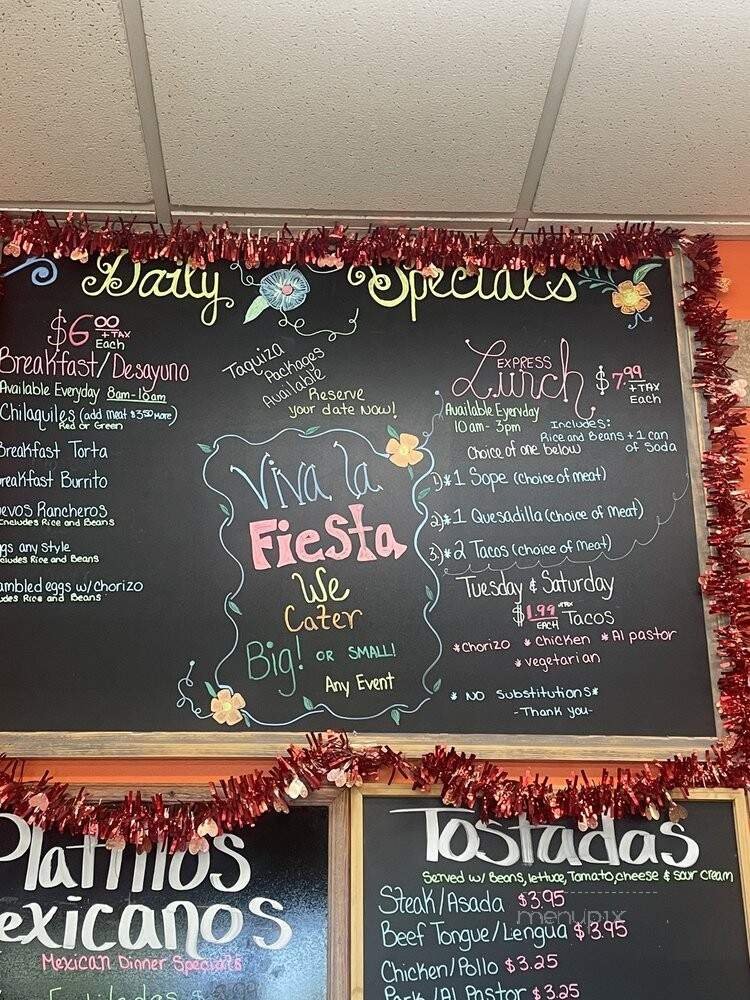 Daily Specials
$6.00
+ TAX
Each
Breakfast/Desayuno
Available Everyday 8am-10am
Chilaquiles (add meat $3.50 more)
Red or Green
Breakfast Torta
Breakfast Burrito
evos Rancheros
Includes Rice and Beans
gs any style
cludes Rice and Beans
ambled eggs w/chorizo
udes Rice and Beans
Taquiza
Packages
Available
Reserve
your date Now!
Viva la
Fiesta
We
Cater
Big! OR SMALL!
Any Event
EXPRESS
Lunch $7.99
+TAX
Each
Available Everyday
10am-3pm
Includes:
Rice and Beans + 1 can
of Soda
Choice of one below
1)* 1 Sope (choice of meat)
2)* 1 Quesadilla (choice of meat)
3)* 2 Tacos (choice of meat)
Tuesday & Saturday
$1.99 +TAX
EACH Tacos
*Chorizo *chicken *Al pastor
*vegetarian
* NO Substitutions*
-Thank you-
Platillos
exicanos
Mexican Dinner Specials
Enchiladas
Tostadas
Served w/ Beans, lettuce, Tomato, cheese & sour cream
Steak/Asada $3.95
menupix
Beef Tongue/Lengua $3.95
Chicken/Pollo $3.25
Pork/Al Pastor $3.25